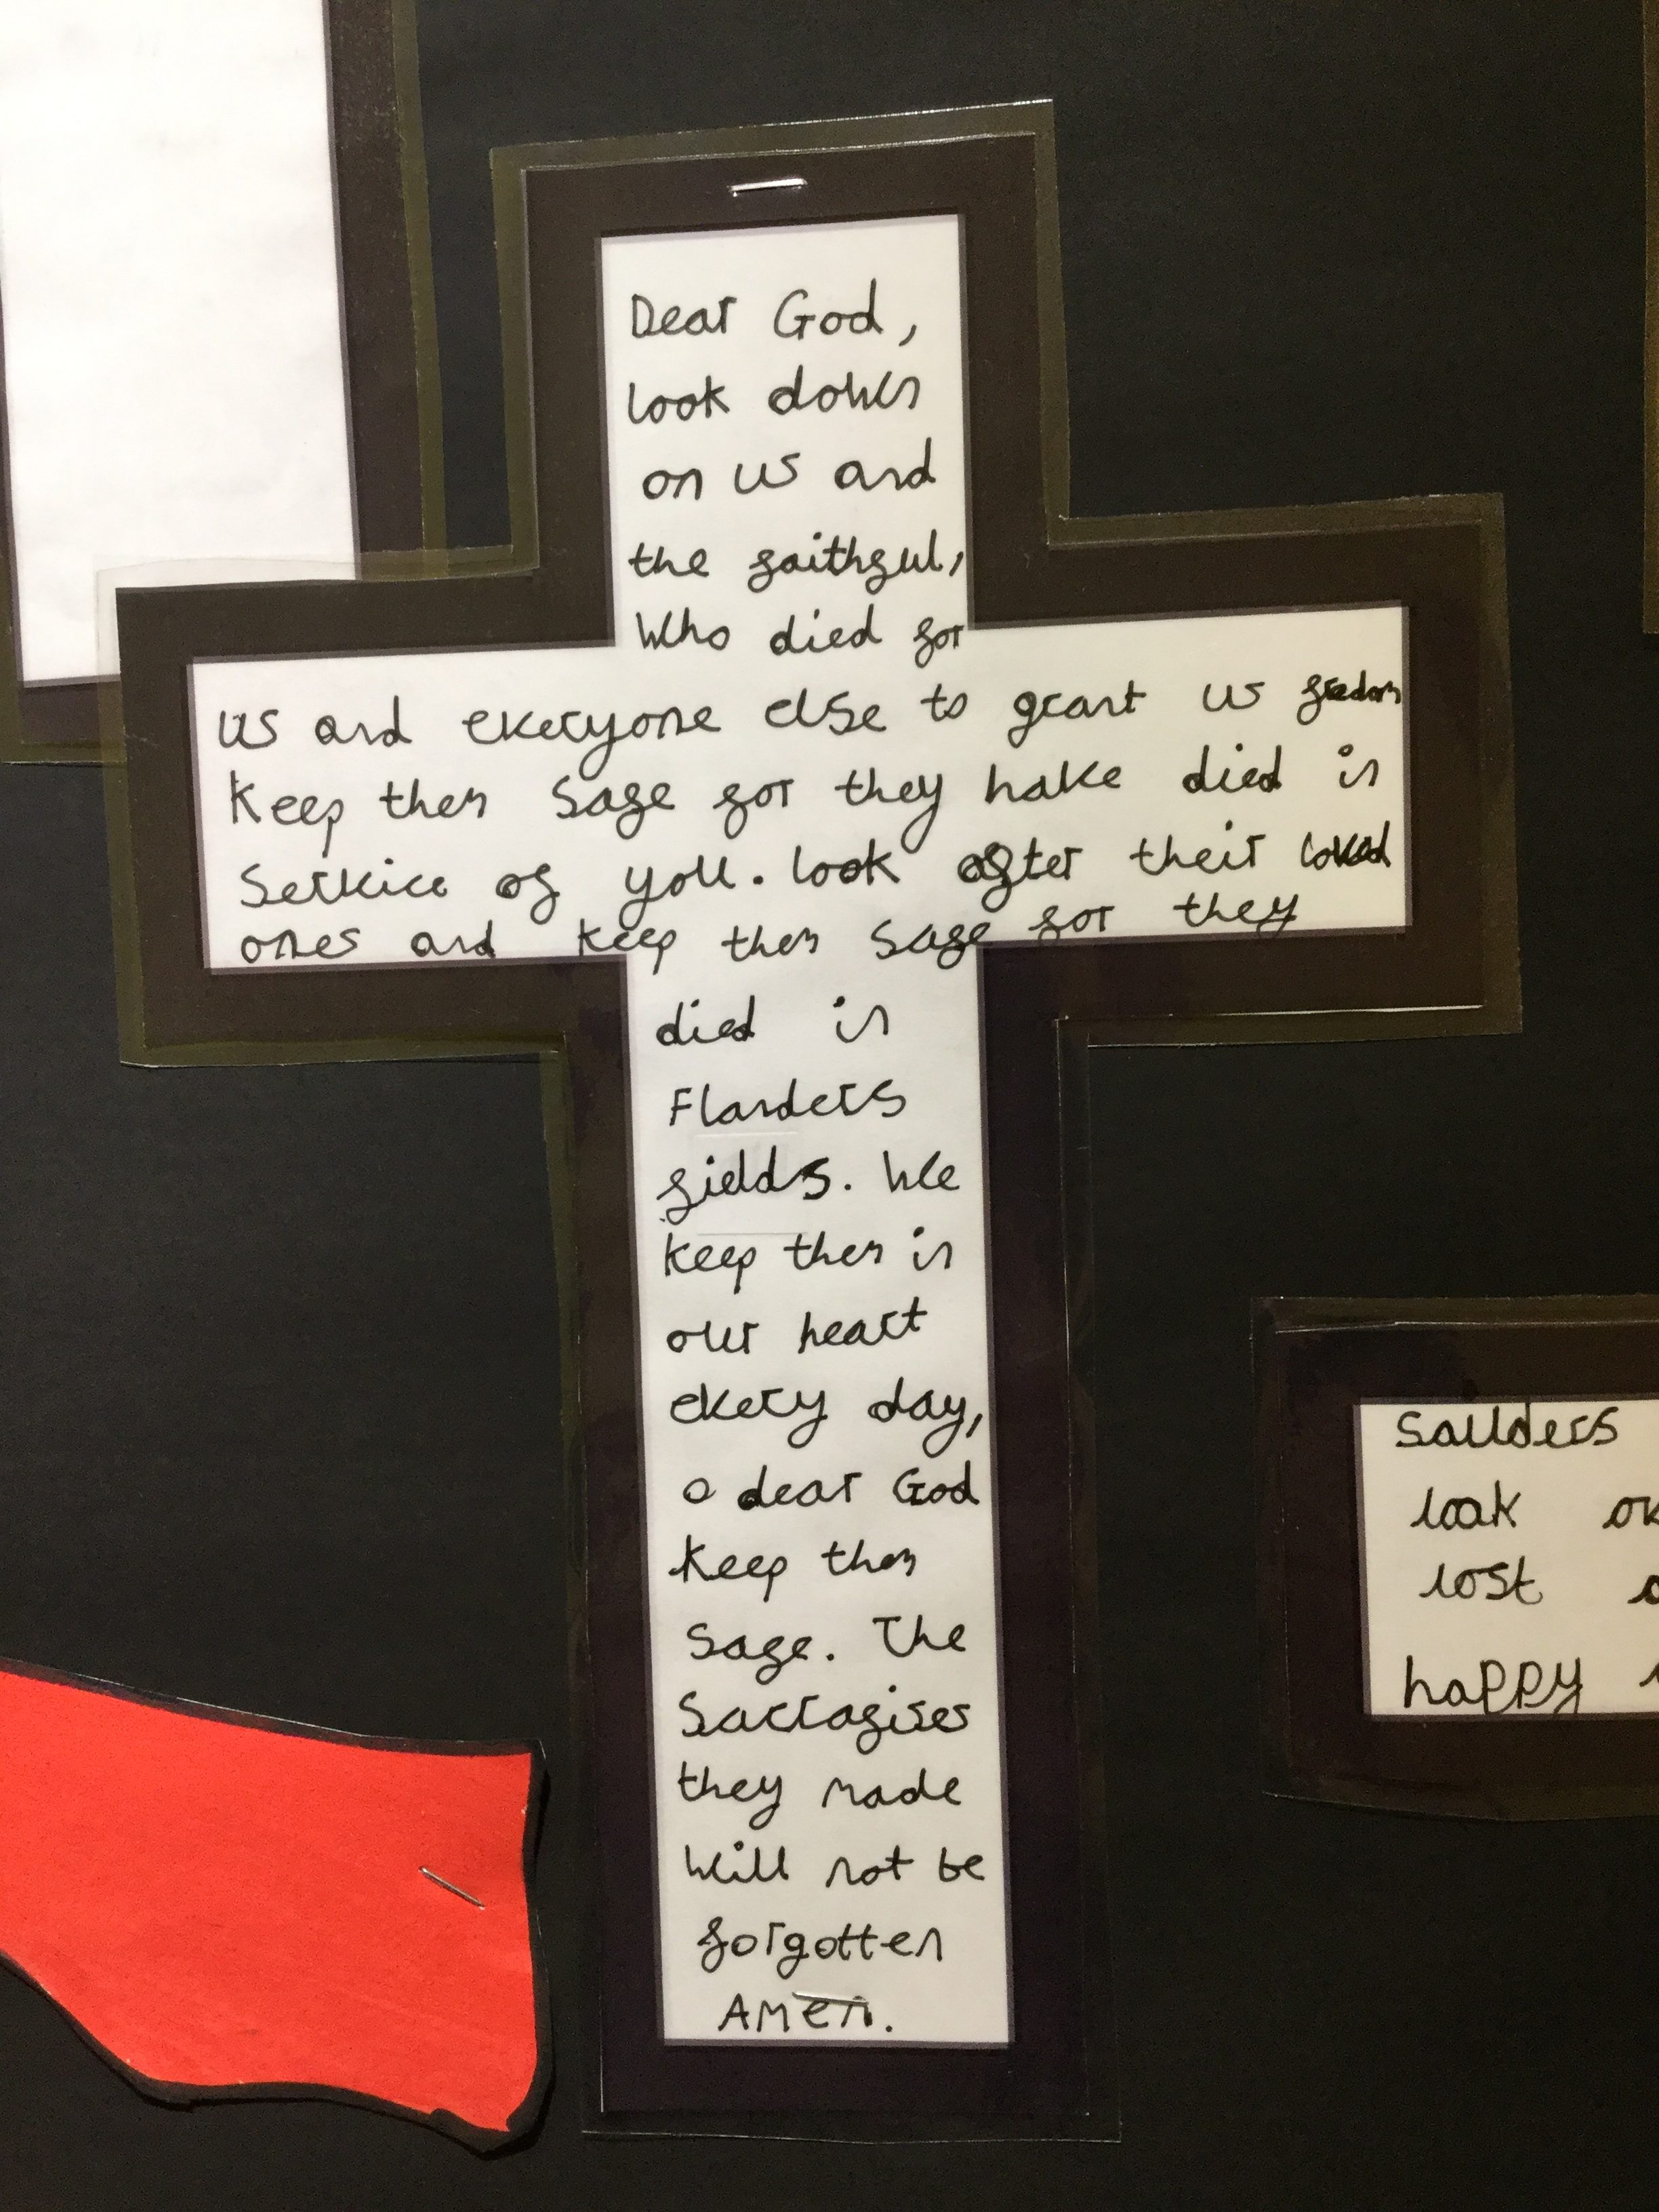 Dear God,
look down
on us and
the faithful,
Who died for
us and everyone else to grant us fredom
Keep them safe for they have died in
Service of you. look after their loved
ones and keep them safe for they
died in
Flanders
fields. We
keep them in
our heart
every day,
o dear God
Keep them
safe. The
Sacrafises
they made
Will not be
forgotten
AMen.
saulders
look
lost
happy